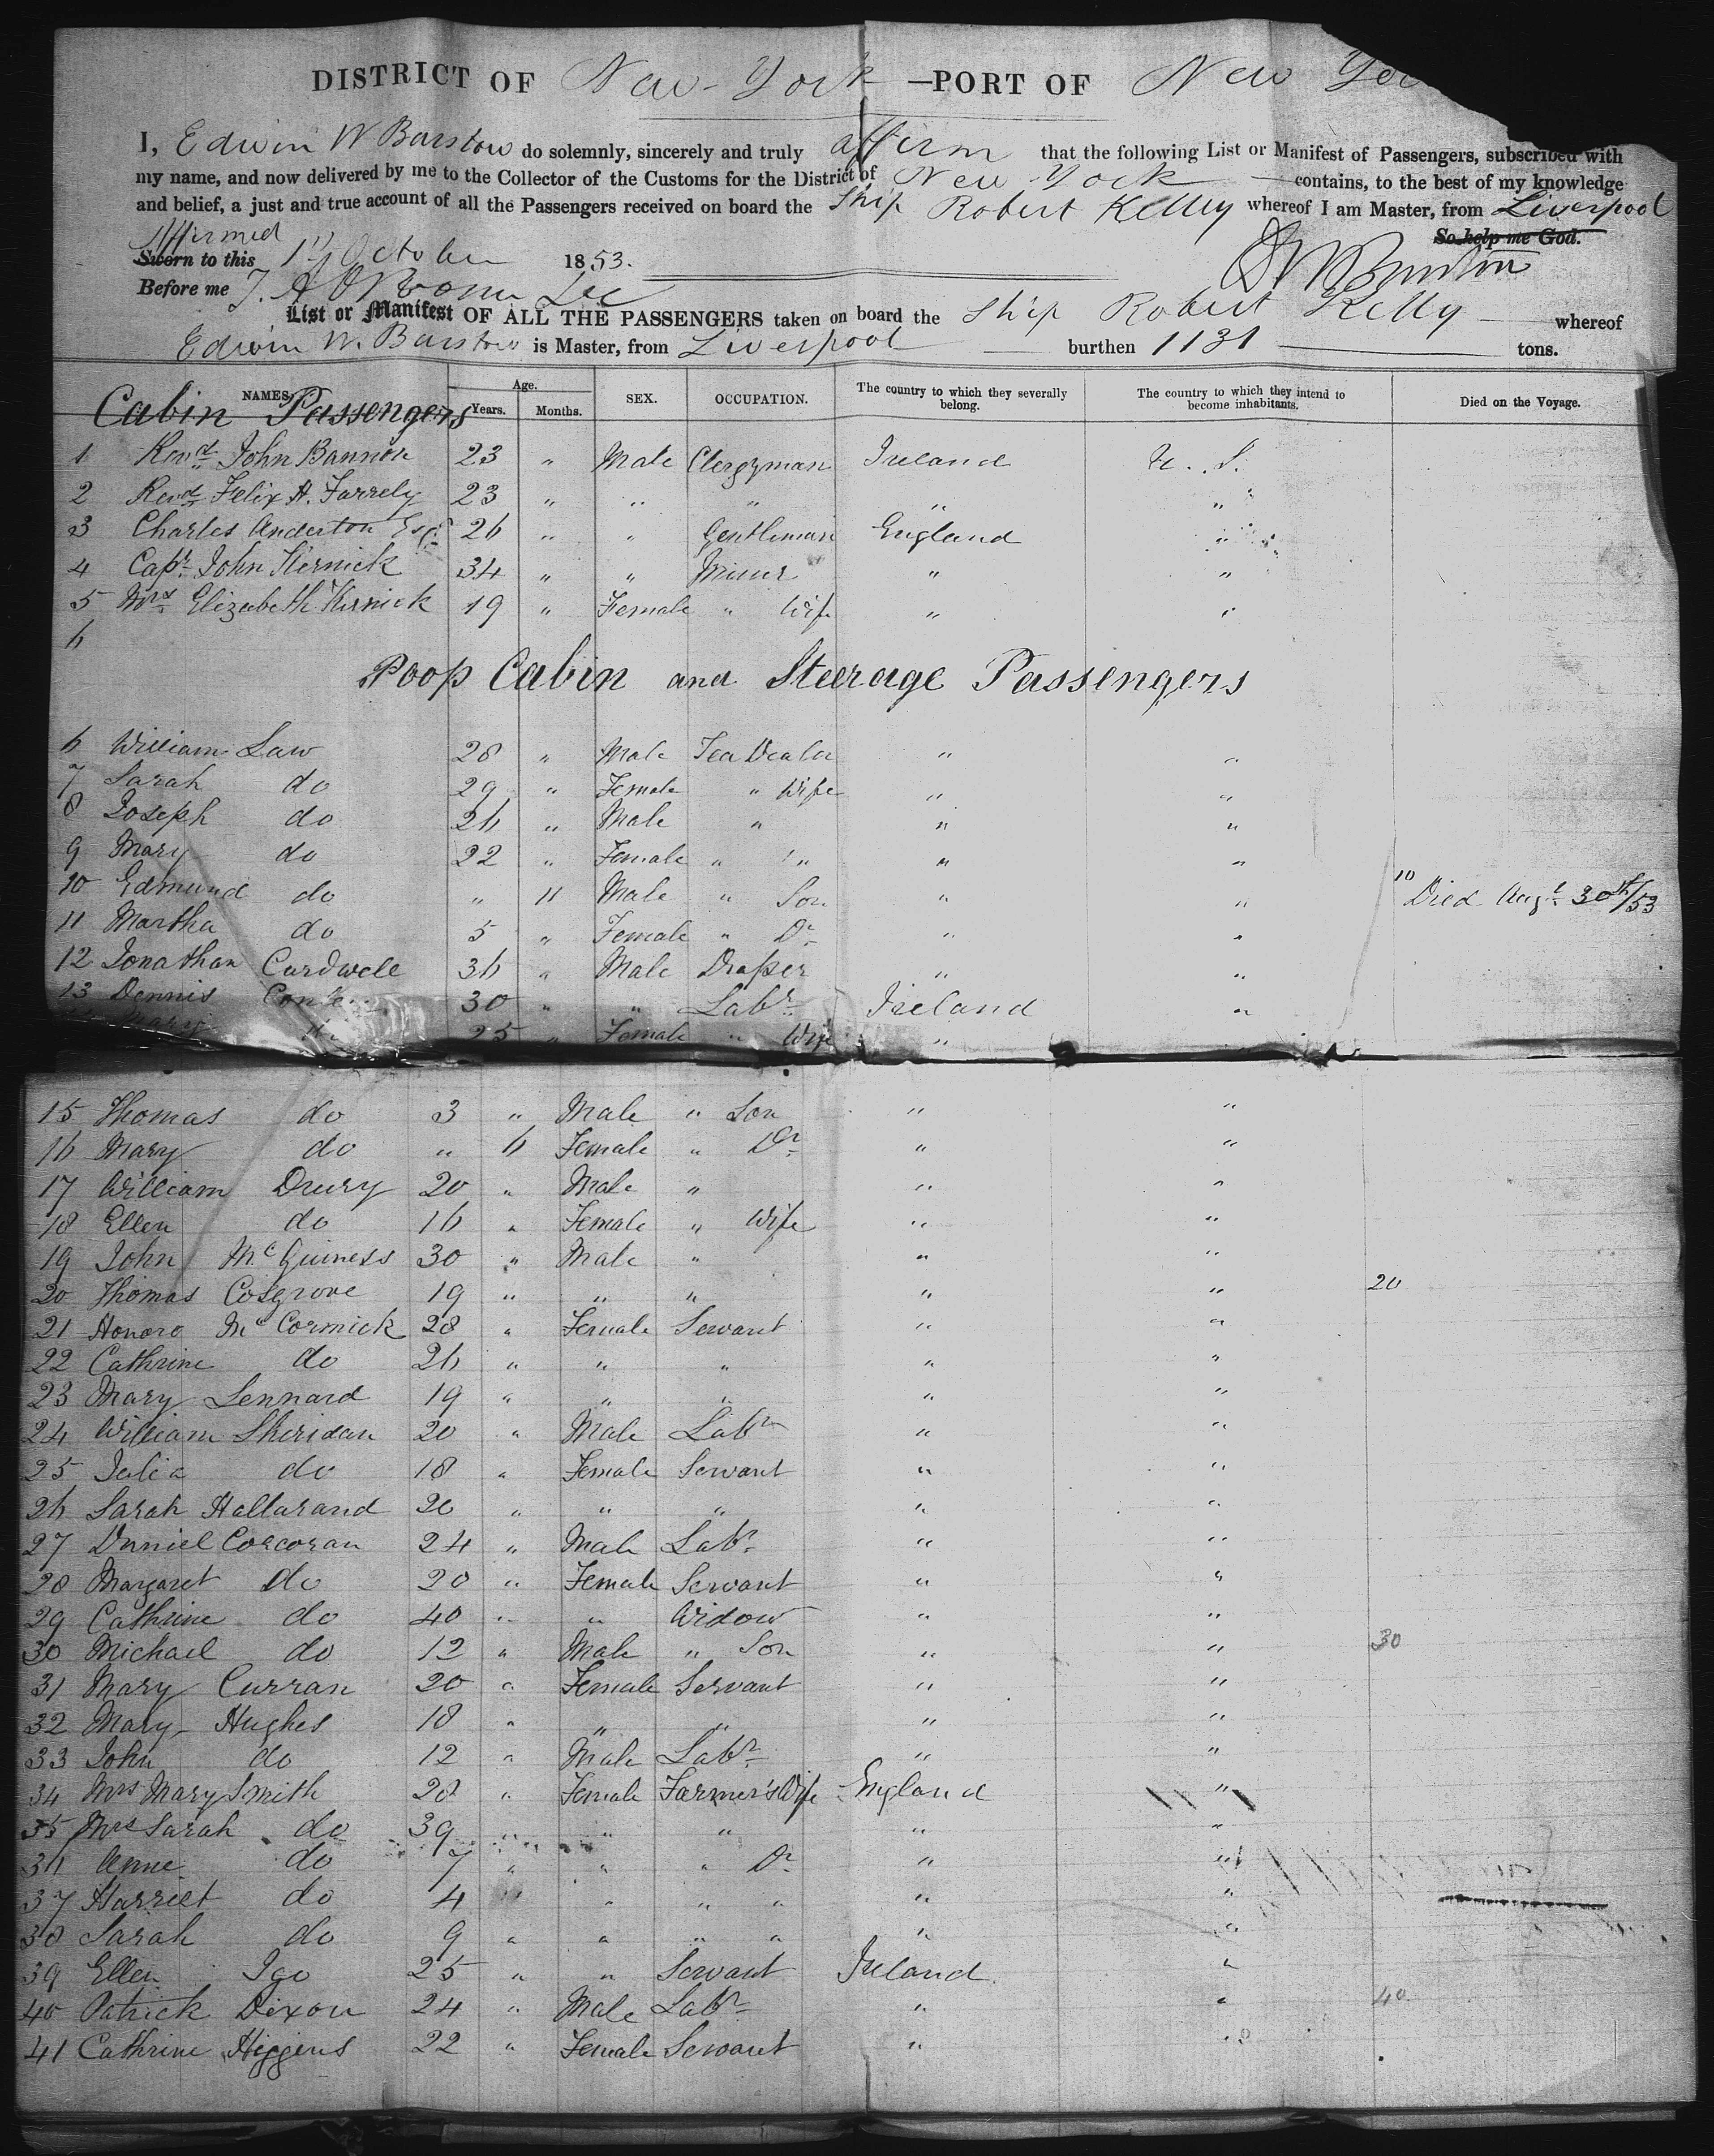 DISTRICT OF New-York — PORT OF New Yo
I, Edwin W Barstow do solemnly, sincerely and truly affirm that the following List or Manifest of Passengers, subscribed with
my name, and now delivered by me to the Collector of the Customs for the District of New York contains, to the best of my knowledge
and belief, a just and true account of all the Passengers received on board the Ship Robert Kelly whereof I am Master, from Liverpool
Affirmed So help me God.
Sworn to this 1st October 1853.
Before me
List or Manifest OF ALL THE PASSENGERS taken on board the Ship Robert Kelly whereof
Edwin W. Barstow is Master, from Liverpool burthen 1131 tons.
NAMES. Age. Years. Months. SEX. OCCUPATION. The country to which they severally belong. The country to which they intend to become inhabitants. Died on the Voyage.
Cabin Passengers
1 Revd. John Bannon 23 " Male Clergyman Ireland U. S.
2 Revd. Felix A. Farrely 23 " " " " "
3 Charles Anderton Esq. 26 " " Gentleman England "
4 Capt. John Kernick 34 " " Miner " "
5 Mrs. Elizabeth Kernick 19 " Female " Wife " "
6
Poop Cabin and Steerage Passengers
6 William Law 28 " Male Tea Dealer " "
7 Sarah do 29 " Female " Wife " "
8 Joseph do 26 " Male " " "
9 Mary do 22 " Female " " " "
10 Edmund do " 11 Male " Son " " 10 Died Augt. 30th/53
11 Martha do 5 " Female " Dr. " "
12 Jonathan Cardwell 36 " Male Draper " "
13 Dennis 30 " " Labr. Ireland "
Mary 25 " Female " Wife "
15 Thomas do 3 " Male " Son " "
16 Mary do " 6 Female " Dr. " "
17 William Drury 20 " Male " " "
18 Ellen do 16 " Female " Wife " "
19 John McGuiness 30 " Male " " "
20 Thomas Cosgrove 19 " " " " " 20
21 Honoro McCormick 28 " Female Servant " "
22 Cathrine do 26 " " " " "
23 Mary Lennard 19 " " " " "
24 William Sheridan 20 " Male Labr " "
25 Julia do 18 " Female Servant " "
26 Sarah Hallarand 20 " " " " "
27 Daniel Corcoran 24 " Male Labr. " "
28 Margaret do 20 " Female Servant " "
29 Cathrine do 40 " " Widow " "
30 Michael do 12 " Male " Son " " 30
31 Mary Curran 20 " Female Servant " "
32 Mary Hughes 18 " " " " "
33 John do 12 " Male Labr. " "
34 Mrs Mary Smith 28 " Female Farmer's Wife England "
35 Mrs Sarah do 39 " " " " "
36 Anne do 7 " " " Dr. " "
37 Harriet do 4 " " " " " "
38 Sarah do 9 " " " " " "
39 Ellen Igo 25 " " Servant Ireland "
40 Patrick Dixon 24 " Male Labr. " " 40
41 Cathrine Higgins 22 " Female Servant " "